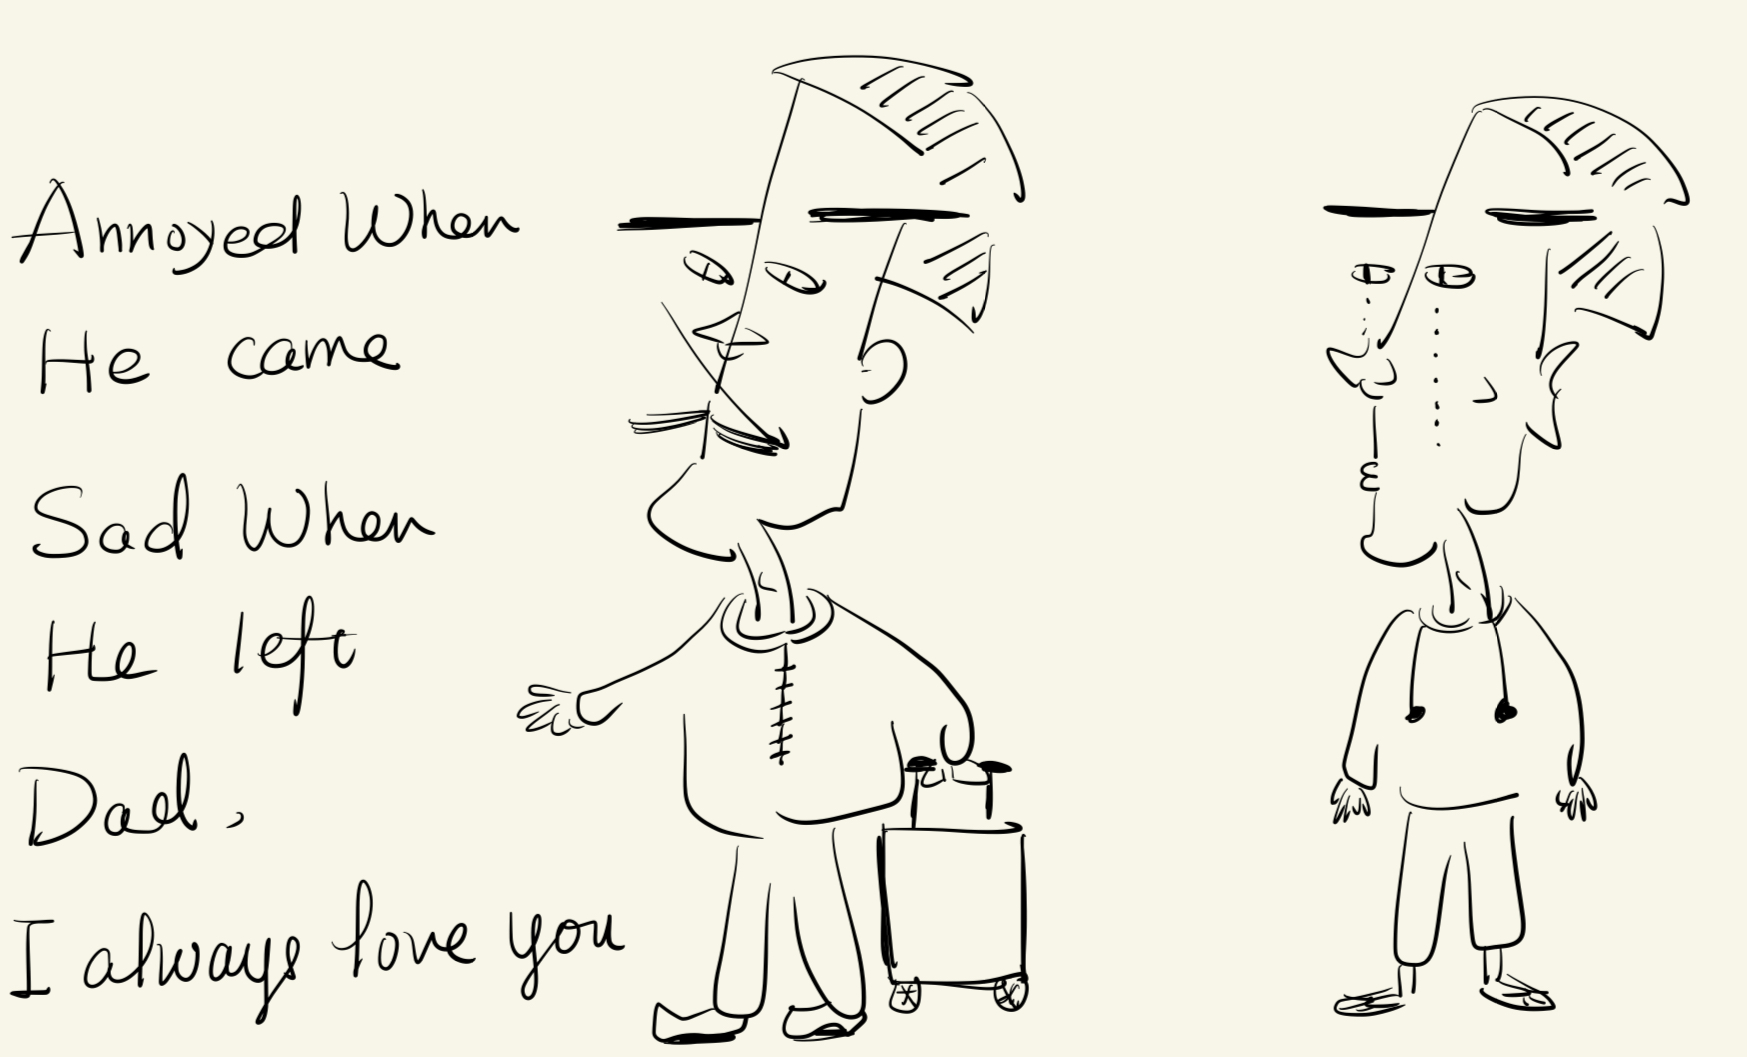 Annoyed When
He came
Sad When
He left
Dad,
I always love you